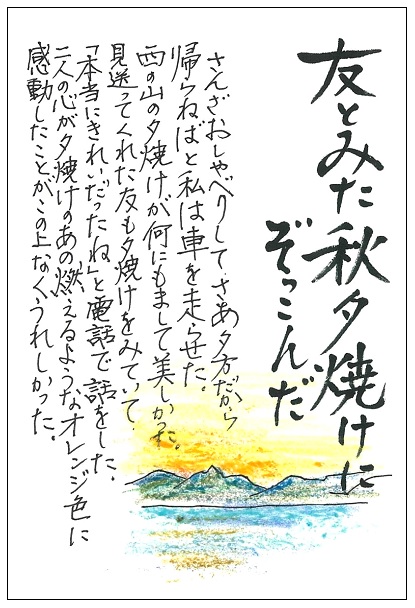 友とみた秋夕焼けに
ぞっこんだ
さんざおしゃべりして、さあ夕方だから
帰らねばと私は車を走らせた。
西の山の夕焼けが何にもまして美しかった。
見送ってくれた友も夕焼けをみていて
「本当にきれいだったね」と電話で話をした。
二人の心が夕焼けのあの燃えるようなオレンジ色に
感動したことがこの上なくうれしかった。